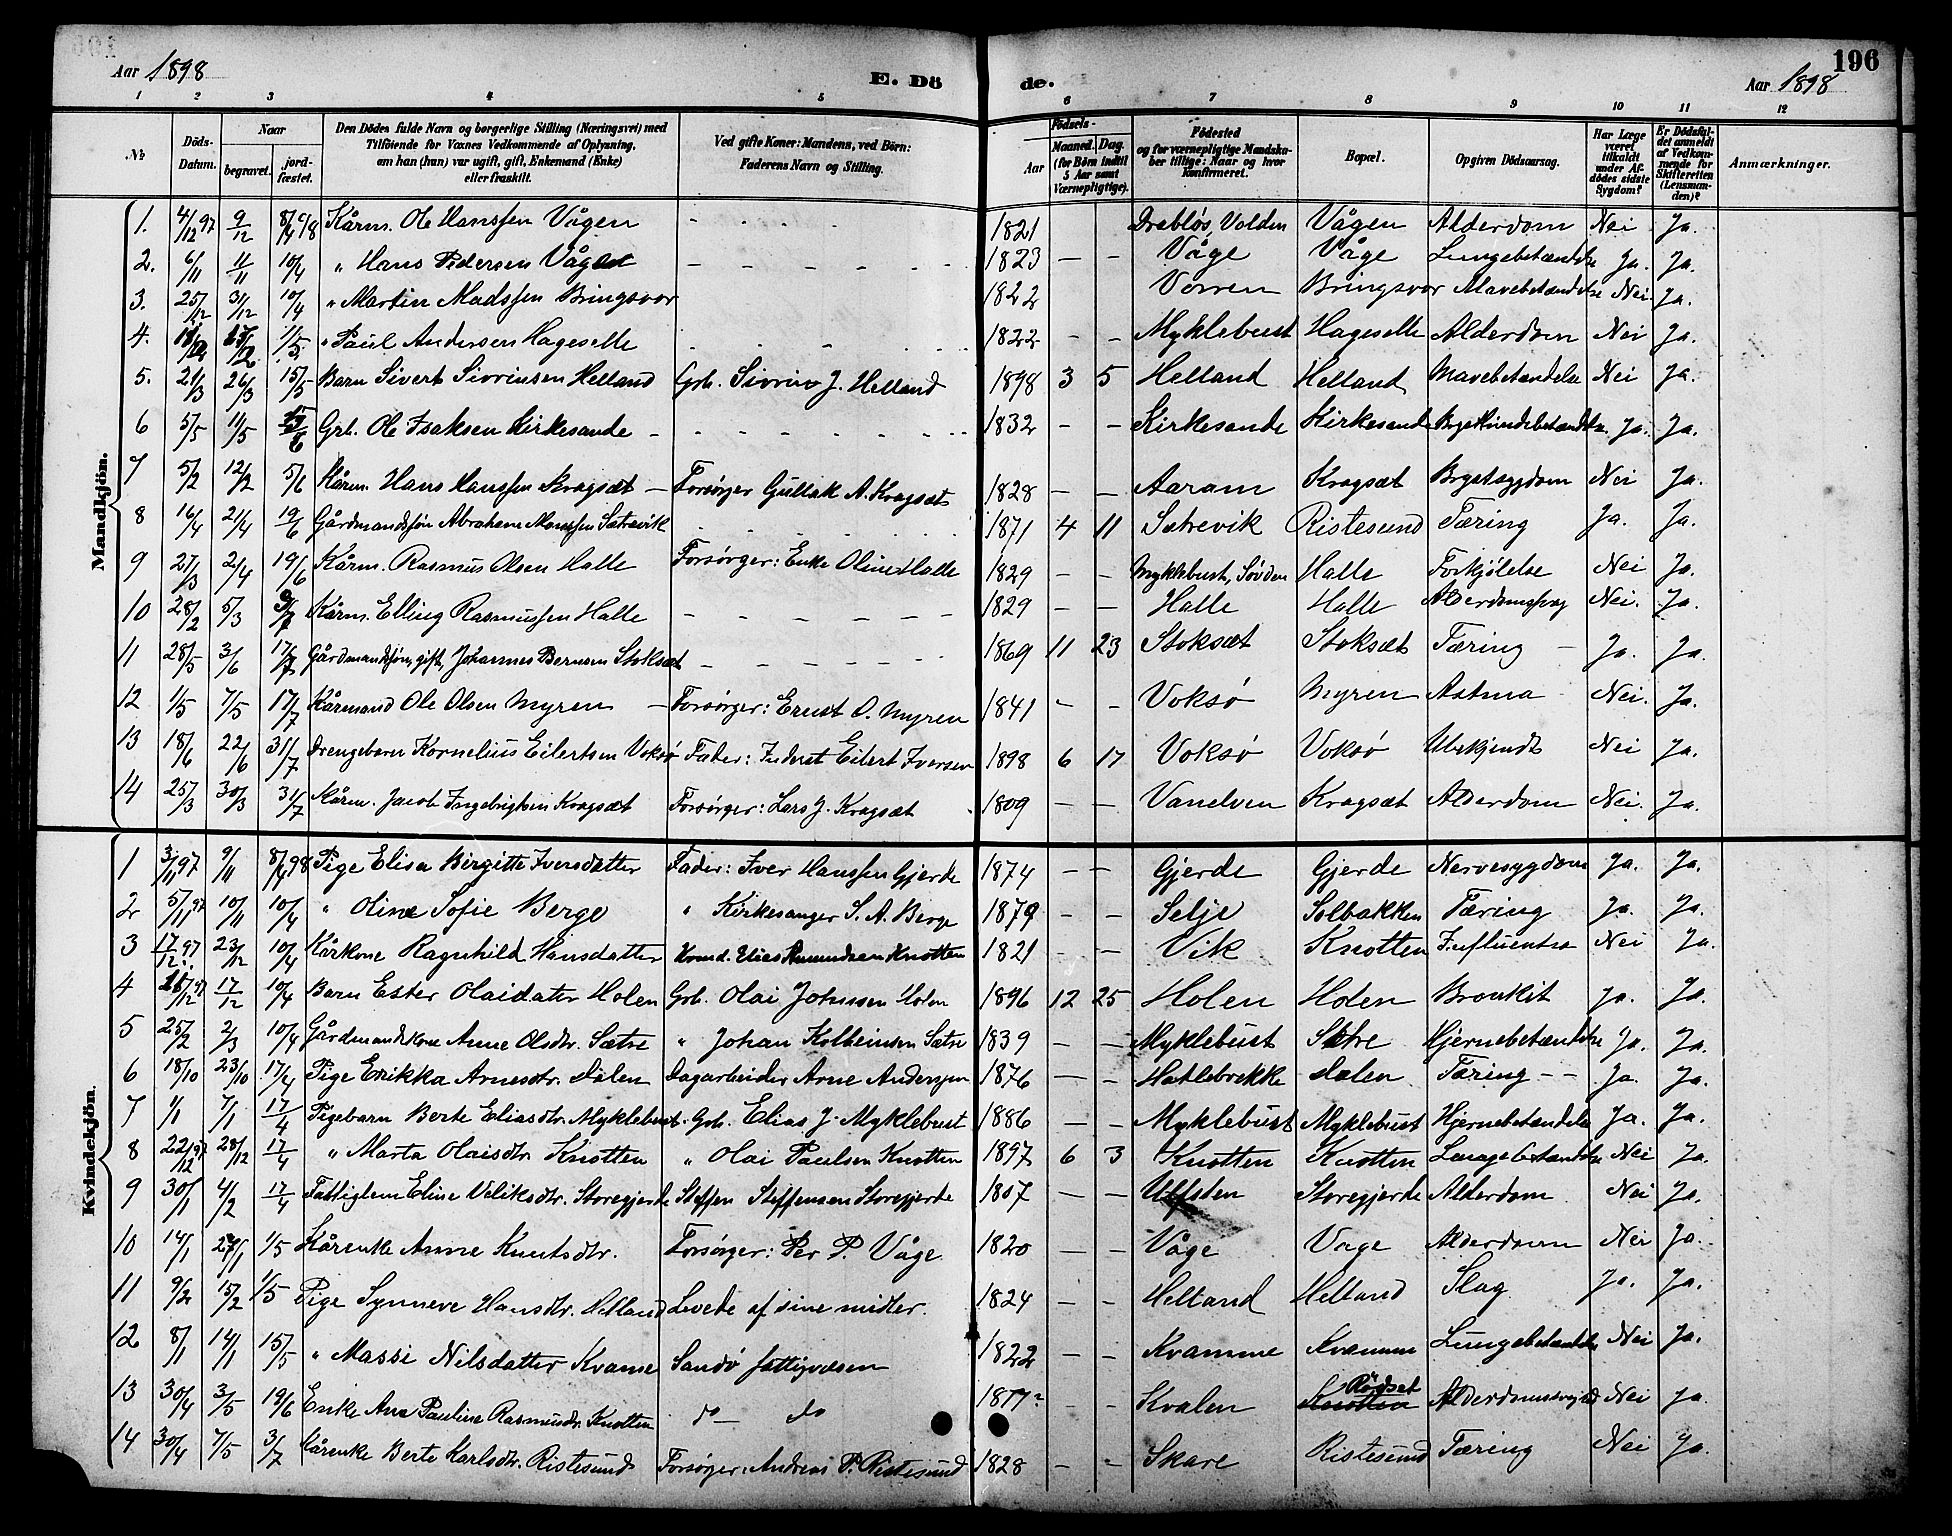 196
Aar 1898 E. Dö de. Aar 1898
1 2 3 4 5 6 7 8 9 10 11 12
№ Döds-Datum. Naar begravet. jordfæstet. Den Dödes fulde Navn og borgerlige Stilling (Næringsvei) med Tilföiende for Voxnes Vedkommende af Oplysning, om han (hun) var ugift, gift, Enkemand (Enke) eller fraskilt. Ved gifte Koner: Mandens, ved Börn: Faderens Navn og Stilling. Födsels- Aar Maaned. Dag. (for Börn indtil 5 Aar samt Værnepligtige). Födested og for værnepligtige Mandskaber tillige: Naar og hvor konfirmeret. Bopæl. Opgiven Dödsaarsag. Har Læge været tilkaldt under Afdödes sidste Sygdom? Er Dödsfaldet anmeldt af Vedkommende for Skifteretten (Lensmanden)? Anmærkninger.
Mandkjön.
1. 4/12 97 9/12 8/4 98 Kårm. Ole Hanssen Vågen - - - - 1821 Drabløs, Volden Vågen Alderdom Nei Ja.
2. 6/11 11/11 10/4 " Hans Pedersen Våge - - - - 1823 - - Våge Våge Lungebetændelse Ja. Ja.
3. 25/12 31/12 10/4 " Martin Madssen Bringsvor 1822 Vorren Bringsvor Mavebetændelse Nei Ja.
4. 1/5 " Paul Andersen Hageselle - - - - 1822 - - Myklebust Hageselle Alderdom Nei Ja.
5. 21/3 26/3 15/5 Barn Sivert Sivrinsen Helland Grb. Sivrin J. Helland 1898 3 5 Helland Helland Mavebetændelse Nei Ja.
6 5/5 11/5 Grb. Ole Isaksen Kirkesande - - - - 1832 - - Kirkesande Kirkesande Ja. Ja.
7 5/2 12/2 5/6 Kårm. Hans Hanssen Kragsæt - Forsørger Gullak A. Kragsæt 1828 - - Aaram Kragsæt Brystsygdom Nei Ja.
8 16/4 21/4 19/6 Gårdmandssøn Abraham Monssen Sætrevik - - - - 1871 4 11 Sætrevik Ristesund Tæring Ja. Ja.
9 27/3 2/4 19/6 Kårm. Rasmus Olsen Halle Forsørger: Enke Oline Halle 1829 - - Myklebust, Søvden Halle Forkjølelse Nei Ja.
10 28/2 5/3 Kårm. Elling Rasmussen Halle - - - - 1829 - - Halle Halle Nei. Ja.
11 28/5 3/6 17/7 Gårdmandssøn, gift, Johannes Bernsen Stoksæt - - - - 1869 11 23 Stoksæt Stoksæt Tæring - Ja. Ja.
12 1/5 7/5 17/7 Kårmand Ole Olsen Myren - Forsørger: Ernst O. Myren 1841 - - Voksø Myren Astma Nei. Ja.
13 18/6 22/6 31/7 Drengebarn Kornelius Eilertsen Voksø Fader: Inderst Eilert Iversen 1898 6 17 Voksø Voksø Ubekjendt Nei Ja.
14 25/3 30/3 31/7 Kårm. Jacob Ingebrigtsen Kragsæt Forsørger: Lars J. Kragsæt 1809 - - Vanelven Kragsæt Alderdom Nei. Ja.
Kvindekjön.
1 3/11 97 9/11 8/4 98 Pige Elisa Birgitte Iversdatter Fader: Iver Hanssen Gjerde 1874 - - Gjerde Gjerde Nervesygdom Ja. Ja.
2 5/11 97 10/11 10/4 " Oline Sofie Berge " Kirkesanger S. A. Berge 1879 - - Selje Solbakken Tæring Ja. Ja.
3 17/12 97 23/12 10/4 Kårkone Ragnhild Hansdatter Elias Knotten 1821 - - Vik Knotten Influentsa Nei Ja.
4 97 17/12 10/4 Barn Ester Olaidater Holen Grb. Olai Johnsen Holen 1896 12 25 Holen Holen Bronkit Ja. Ja.
5 25/2 2/3 10/4 Gårdmandskone Anne Olsdtr. Sætre " Johan Kolbeinsen Sætre 1839 - - Myklebust Sætre Hjernebetændelse Ja. Ja.
6 18/10 23/10 17/4 Pige Erikka Arnesdtr. Dalen Dagarbeider Arne Andersen 1876 - - Hatlebrekke Dalen Tæring - - Ja. Ja.
7 1/1 7/1 17/4 Pigebarn Berte Eliasdtr. Myklebust. Grb. Elias J. Myklebust 1886 - - Myklebust Myklebust Hjernebetændelse Ja. Ja.
8 22/12 97 28/12 17/4 " Marta Olaisdtr. Knotten " Olai Paulsen Knotten 1897 6 3 Knotten Knotten Lungebetændelse Nei Ja.
9 30/1 4/2 17/4 Fattiglem Eline Veliksdtr. Storegjerde Steffen Steffensen Storegjerde 1807 - - Ulfsten Storegjerde Alderdom Nei Ja.
10 14/1 1/5 Kårenke Anne Knutsdtr. Forsørger: Per P. Våge 1820 - - Våge Våge Alderdom Nei Ja.
11 9/2 15/2 1/5 Pige Synneve Hansdtr. Helland Levede af sine midler. 1824 - - Helland Helland Slag Ja. Ja.
12 8/1 14/1 15/5 " Massi Nilsdatter Kvame Sandø fattigvæsen 1822 - - Kvamme Kvamme Lungebetændelse Nei Ja.
13 30/4 3/5 19/6 Enke Ane Pauline Rasmusdtr. Knotten do - do - - Kvalen Knotten Rødset Nei Ja
14 30/4 7/5 3/7 Kårenke Berte Karlsdtr. Ristesund Forsørger: Andreas P. Ristesund 1828 - - Skare Ristesund Tæring Nei Ja.